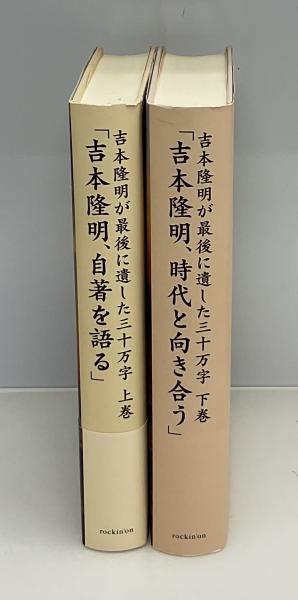 吉本隆明が最後に遺した三十万字 上巻
「吉本隆明、自著を語る」
rockin'on
吉本隆明が最後に遺した三十万字 下巻
「吉本隆明、時代と向き合う」
rockin'on